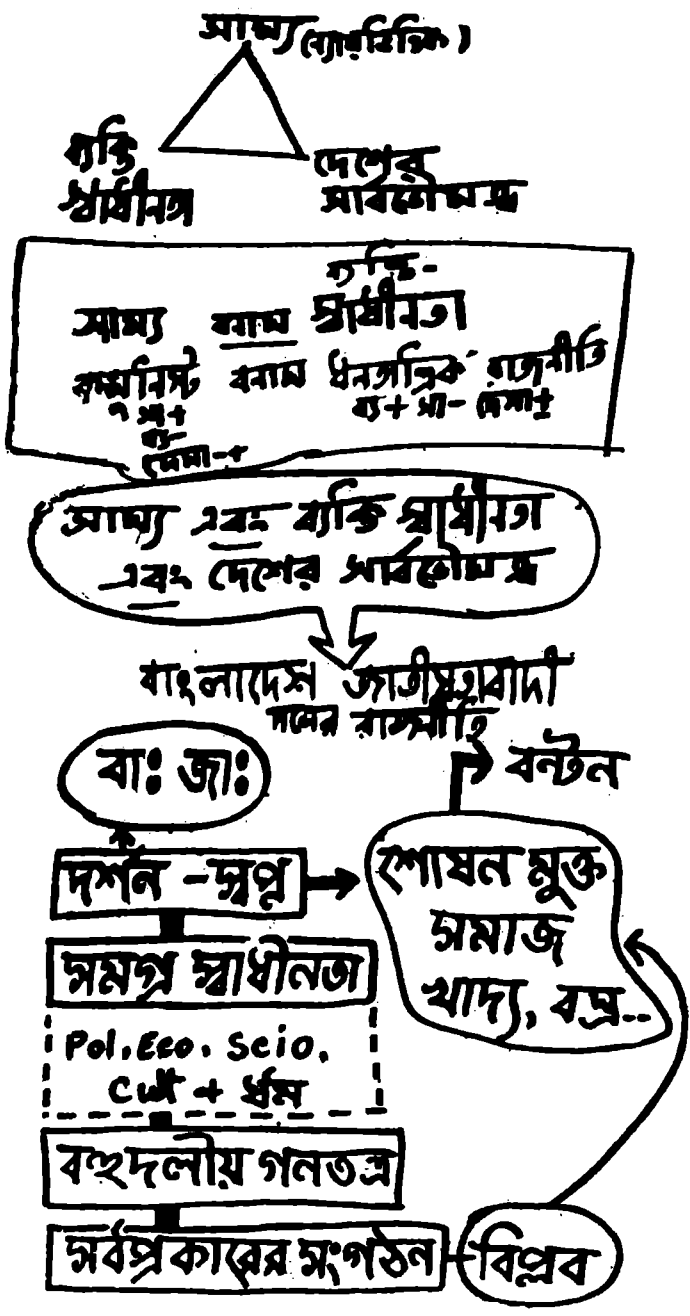 সাম্য (ন্যায়ভিত্তিক)
ব্যক্তি
স্বাধীনতা
দেশের
সার্বভৌমত্ব
ব্যক্তি-
সাম্য বনাম স্বাধীনতা
কম্যুনিস্ট বনাম ধনতান্ত্রিক রাজনীতি
সা+
ব্য-
দেসা-+
ব্য+ সা- দেসা±
সাম্য এবং ব্যক্তি স্বাধীনতা
এবং দেশের সার্বভৌমত্ব
বাংলাদেশ জাতীয়তাবাদী
দলের রাজনীতি
বাঃ জাঃ
বন্টন
দর্শন - স্বপ্ন
শোষন মুক্ত
সমাজ
খাদ্য, বস্র..
সমগ্র স্বাধীনতা
Pol. Eco. Scio.
Cult + র্ধম
বহুদলীয় গনতন্ত্র
সর্বপ্রকারের সংগঠন
বিপ্লব